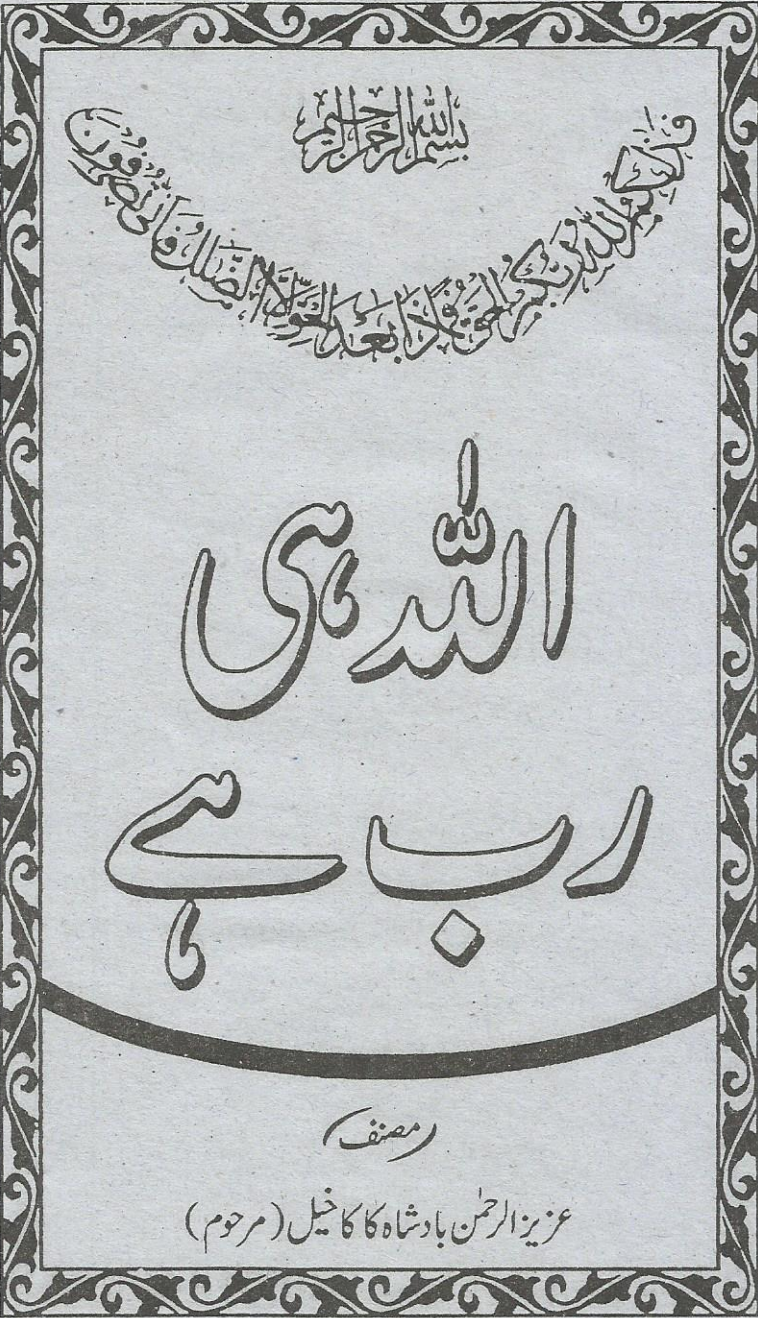 بسم اللہ الرحمن الرحیم
فَذٰلِكُمُ اللّٰهُ رَبُّكُمُ الْحَقُّ فَمَاذَا بَعْدَ الْحَقِّ اِلَّا الضَّلٰلُ فَاَنّٰى تُصْرَفُوْنَ
اللہ ہی
رب ہے
مصنف
عزیز الرحمٰن بادشاہ کاکاخیل (مرحوم)